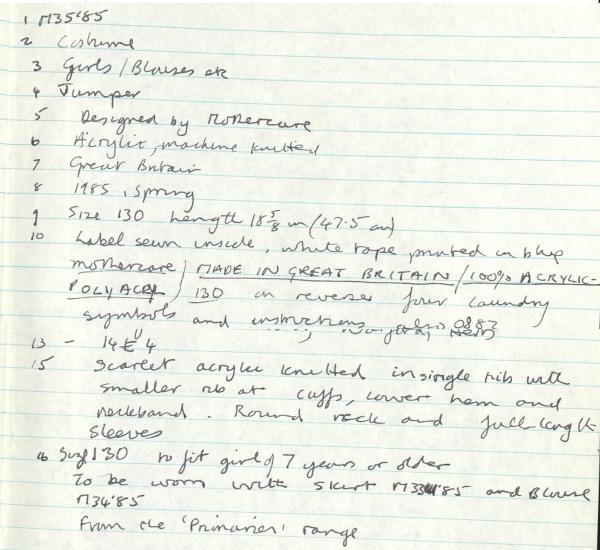 1 M35'85
2 Costume
3 Girls / Blouses etc
4 Jumper
5 Designed by Mothercare
6 Acrylic, machine knitted
7 Great Britain
8 1985, Spring
9 Size 130 Length 18 5/8 in (47.5 cm)
10 Label sewn inside, white tape printed in blue
mothercare / MADE IN GREAT BRITAIN / 100% ACRYLIC-
POLYACRYL / 130 on reverse four laundry
symbols and instructions
13 -
15 Scarlet acrylic knitted in single rib with
smaller rib at cuffs, lower hem and
neckband. Round neck and full length
sleeves
16 Size 130 to fit girl of 7 years or older
To be worn with skirt M33'85 and Blouse
M34'85
From the 'Primaries' range